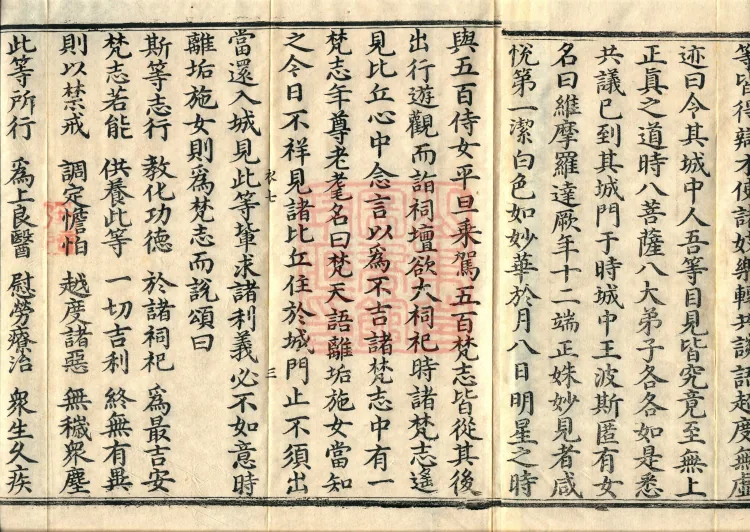 等皆得辯才 好樂轉共談語 度無虛
迹曰今其城中人吾等目見皆究竟至無上
正真之道時八菩薩八大弟子各各如是悉
共議已到其城門于時城中王波斯匿有女
名曰維摩羅達厥年十二端正姝妙見者咸
悅第一潔白色如妙華於月八日明星之時
與五百侍女平旦乘駕五百梵志皆從其後
出行遊觀而詣祠壇欲大祠祀時諸梵志遙
見比丘心中念言以爲不吉諸梵志中有一
梵志年尊老耄名曰梵天語離垢施女當知
之今日不祥見諸比丘住於城門止不須出
衣七 三
當還入城見此等輩求諸利義必不如意時
離垢施女則爲梵志而說頌曰
斯等志行 教化功德 於諸祠祀 爲最吉安
梵志若能 供養此等 一切吉利 終無有異
則以禁戒 調定憺怕 越度諸惡 無穢衆塵
此等所行 爲上良醫 慰勞療治 衆生久疾